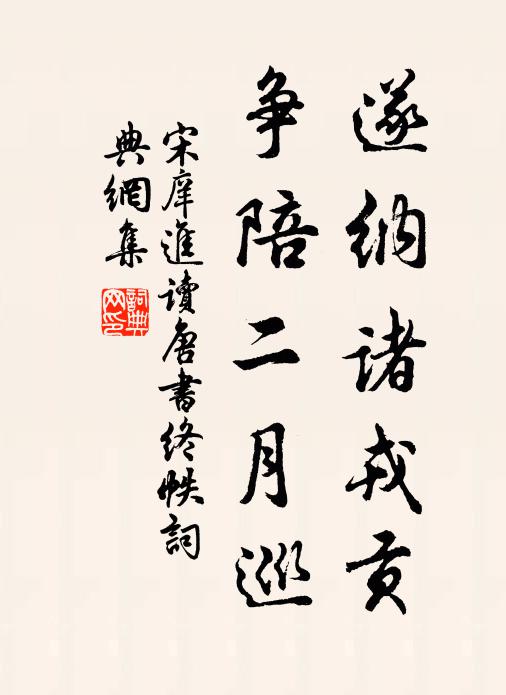 遂納諸戎貢
争陪二月巡
宋庠進讀唐書終帙詞
典網集
詞典網印